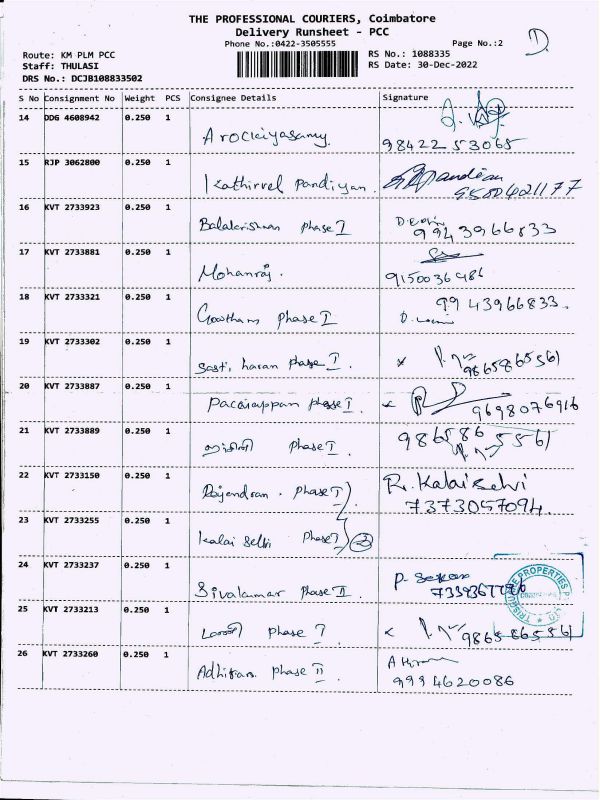 THE PROFESSIONAL COURIERS, Coimbatore
Delivery Runsheet - PCC
Phone No.:0422-3505555
Page No.:2
Route: KM PLM PCC
Staff: THULASI
DRS No.: DCJB108833502
RS No.: 1088335
RS Date: 30-Dec-2022
S No Consignment No Weight PCS Consignee Details Signature
14 DDG 4608942 0.250 1
Arockiyasamy.
98422 53065
15 RJP 3062800 0.250 1
Kathirvel Pandiyan.
9580421177
16 KVT 2733923 0.250 1
Balakrishnan phase I
9943966833
17 KVT 2733881 0.250 1
Mohanraj.
9150036486
18 KVT 2733321 0.250 1
Gowtham phase II
9943966833.
19 KVT 2733302 0.250 1
haran phase I
9865865561
20 KVT 2733887 0.250 1
Pachaiappan phase I
9698076916
21 KVT 2733889 0.250 1
phase I
986586 5561
22 KVT 2733150 0.250 1
Rajendran. phase I
R. Kalaiselvi
7373057094.
23 KVT 2733255 0.250 1
kalai selvi phase I
24 KVT 2733237 0.250 1
Sivakumar phase II
P. Sekar
25 KVT 2733213 0.250 1
phase I
9865865561
26 KVT 2733260 0.250 1
phase II
9994620086